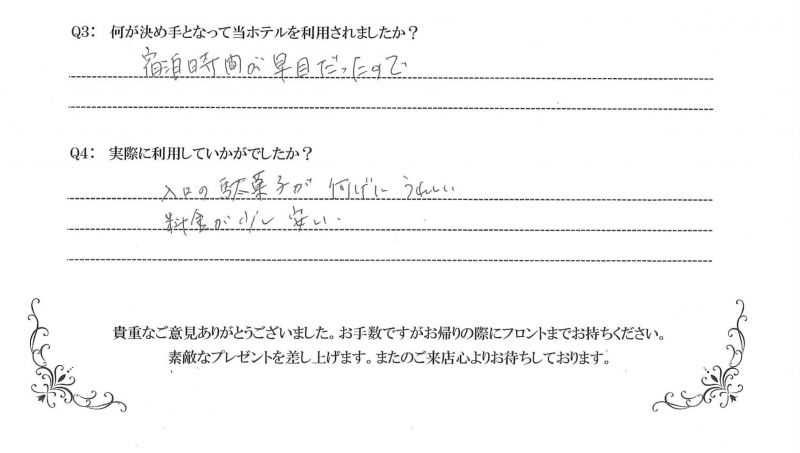 Q3: 何が決め手となって当ホテルを利用されましたか?
宿泊時間が早目だったので
Q4: 実際に利用していかがでしたか?
入口の駄菓子が 何げに うれしい
料金が少し 安い.
貴重なご意見ありがとうございました。お手数ですがお帰りの際にフロントまでお持ちください。
素敵なプレゼントを差し上げます。またのご来店心よりお待ちしております。